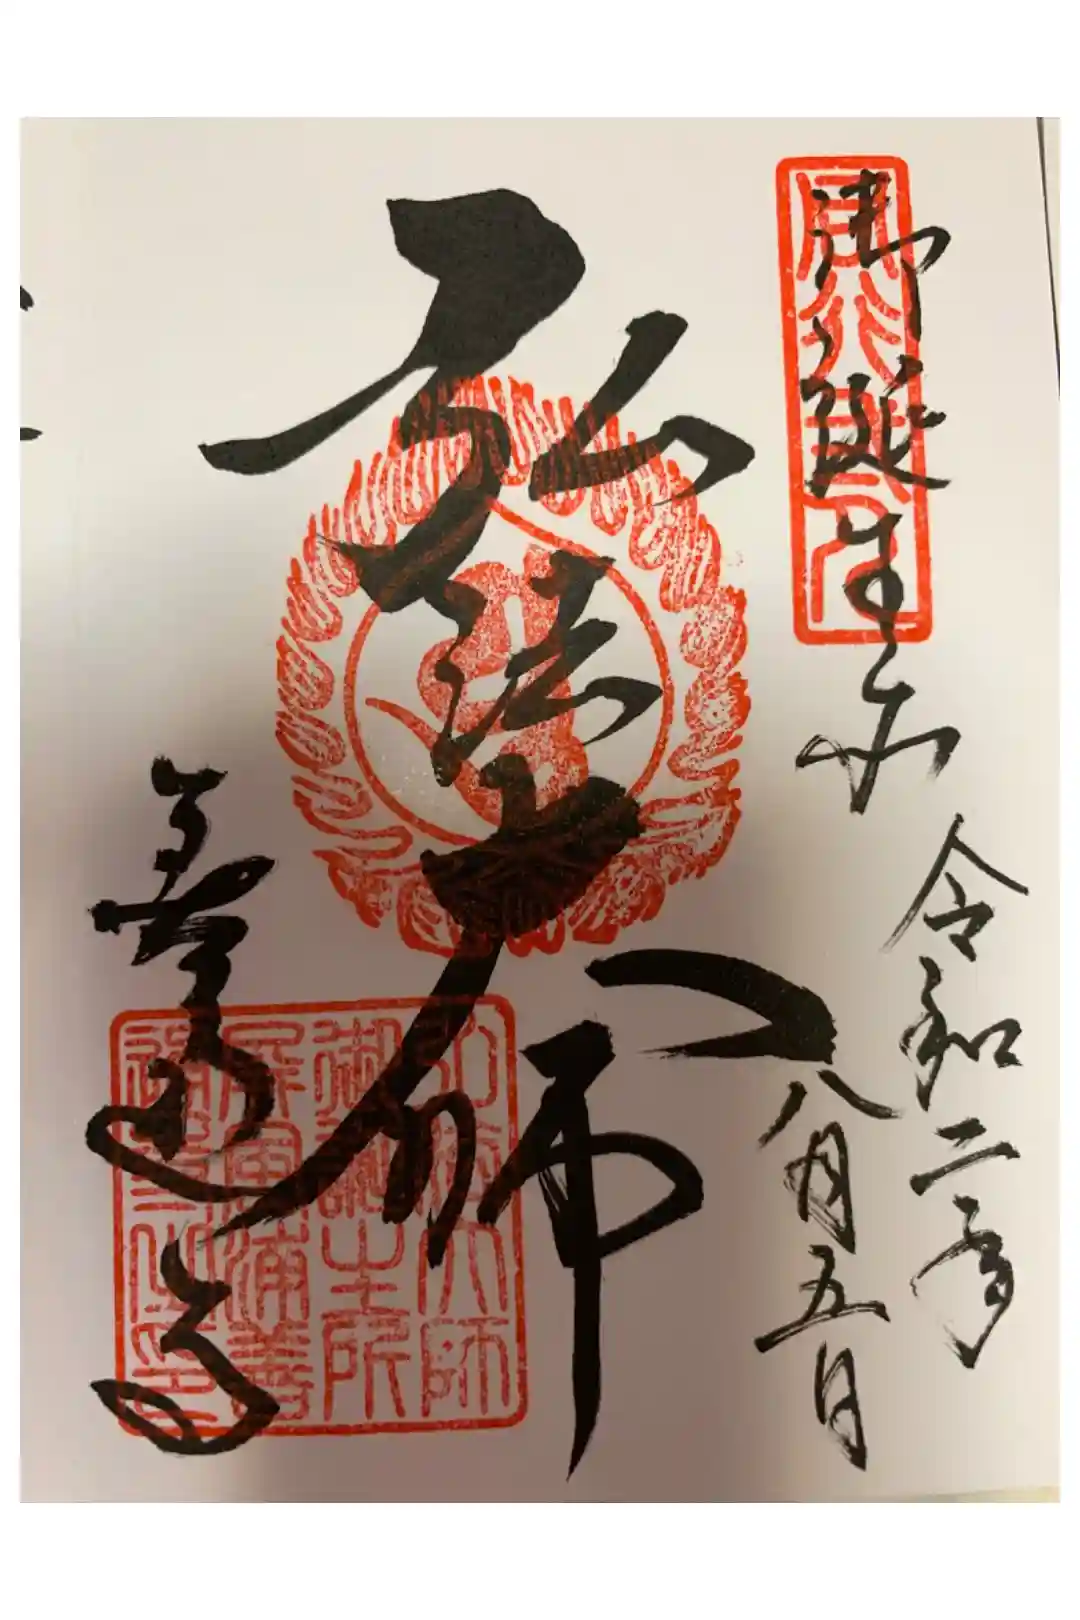 同行二人
御誕生所
令和二年
八月五日
弘法大師
善通寺
弘法大師
御誕生所
屏風浦善
通寺之印